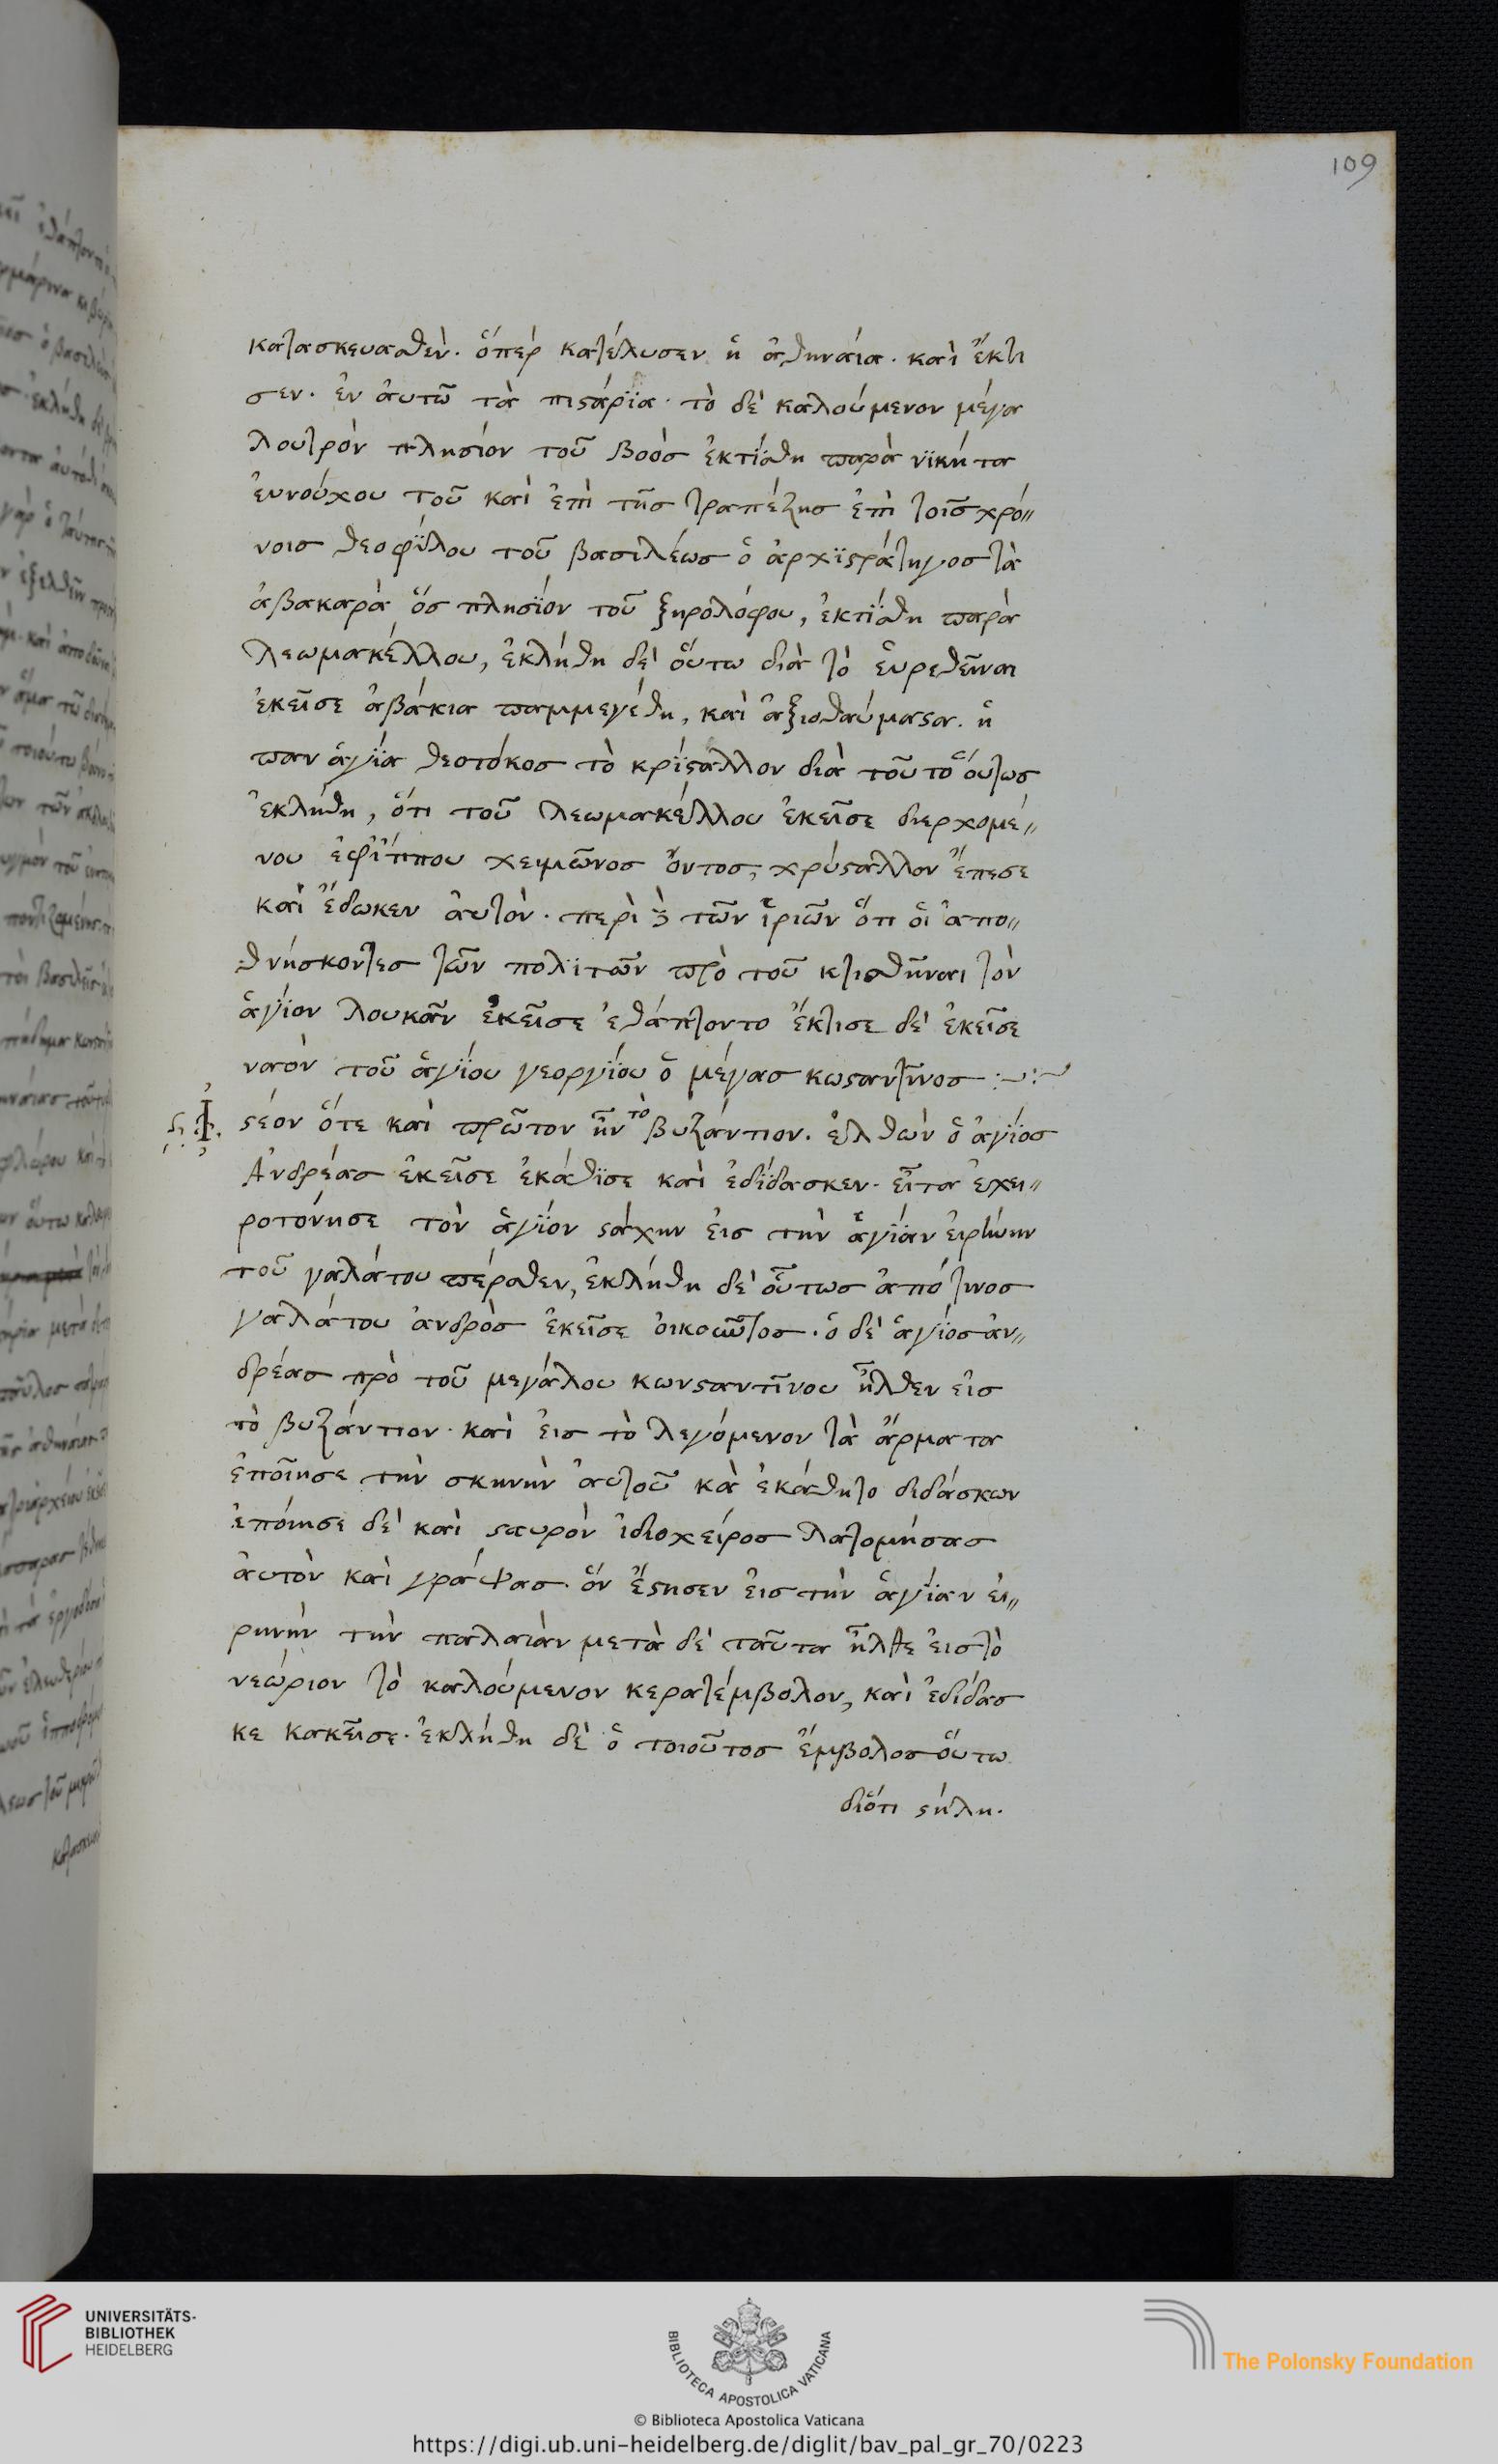 109
κατασκευασθὲν. ὅπερ κατέλυσεν ἡ ἀθηναία. καὶ ἔκτι
σεν. ἐν ἀυτῶ τὰ πιϛάρϊα. τὸ δὲ καλούμενον μέγα
λουτρὸν πλησίον τοῦ βοὸσ ἐκτίσθη παρὰ νϊκήτα
ἐυνούχου τοῦ καὶ ἐπὶ τῆσ τραπέζησ ἐπὶ τοῖσ χρό〃
νοισ θεοφΐλου τοῦ βασιλέωσ ὁ ἀρχϊϛράτηγοσ τὰ
ἀβακαρὰ ὅσ πλησϊόν τοῦ ξηρολόφου, ἐκτΐσθη παρὰ
λεωμακέλλου, ἐκλήθη δὲ ὅυτω διὰ τὸ ἑυρεθεῖναι
ἐκεῖσε ἀβάκια παμμεγέθη, καὶ ἀξιοθαύμαϛα. ἡ
παναγΐα θεοτόκοσ τὸ κρΐϛαλλον διὰ τοῦτο ὅυτωσ
ἐκλήθη, ὅτι τοῦ λεωμακέλλου ἐκεῖσε διερχομέ〃
νου ἐφΐππου χειμῶνοσ ὄντοσ, χρύϛαλλον ἔπεσε
καὶ ἔδωκεν ἀυτόν. περὶ ϟ τῶν ἱριῶν ὅτι ὁι ἀπο〃
θνήσκοντεσ τῶν πολϊτῶν πρὸ τοῦ κτισθῆναι τὸν
ἅγίον λουκᾶν ἐκεῖσε ἐθάπτοντο ἔκτισε δὲ ἐκεῖσε
ναὸν τοῦ ἁγΐου γεοργΐου ὁ μέγασ κωϛαντῖνοσ :~:~
ϛέον ὅτε καὶ πρῶτον ἦν τὸ βυζάντιον. ἐλθὼν ὁ ἁγίοσ
Ἀνδρέασ ἐκεῖσε ἐκάθϊσε καὶ ἐδΐδασκεν. εἶτα ἐχει〃
ροτόνησε τὸν ἅγϊον ϛάχην ἐισ τὴν ἁγΐαν ἐιρήνην
τοῦ γαλάτου πέραθεν, ἐκλήθη δὲ οὕτωσ ἀπό τινοσ
γαλάτου ἀνδρὸσ ἐκεῖσε ὀικοῶντοσ. ὁ δὲ ἁγίοσ ἀν〃
δρέασ πρὸ τοῦ μεγάλου κωνϛαντῖνου ἦλθεν ἐισ
τὸ βυζάντιον. καὶ ἐισ τὸ λεγόμενον τὰ ἅρματα
ἐποῖησε τὴν σκηνὴν ἀυτοῦ κὰ ἐκάθητο διδάσκων
ἐπόιησε δὲ καὶ ϛαυρὸν ἰδιοχείροσ λατομήσασ
ἀυτὸν καὶ γράψασ. ὃν ἔϛησεν ἐισ τὴν ἁγΐαν ἐι〃
ρηνὴν τὴν παλαιὰν μετὰ δὲ ταῦτα ἦλθε ἐισ τὸ
νεώριον τὸ καλούμενον κερατέμβολον, καὶ ἐδίδασ
κε κακεῖσε. ἐκλήθη δὲ ὁ τοιοῦτοσ ἔμβολοσ ὅυτω
διότι ϛήλη.
UNIVERSITÄTS-
BIBLIOTHEK
HEIDELBERG
BIBLIOTECA APOSTOLICA VATICANA
The Polonsky Foundation
© Biblioteca Apostolica Vaticana
https://digi.ub.uni-heidelberg.de/diglit/bav_pal_gr_70/0223